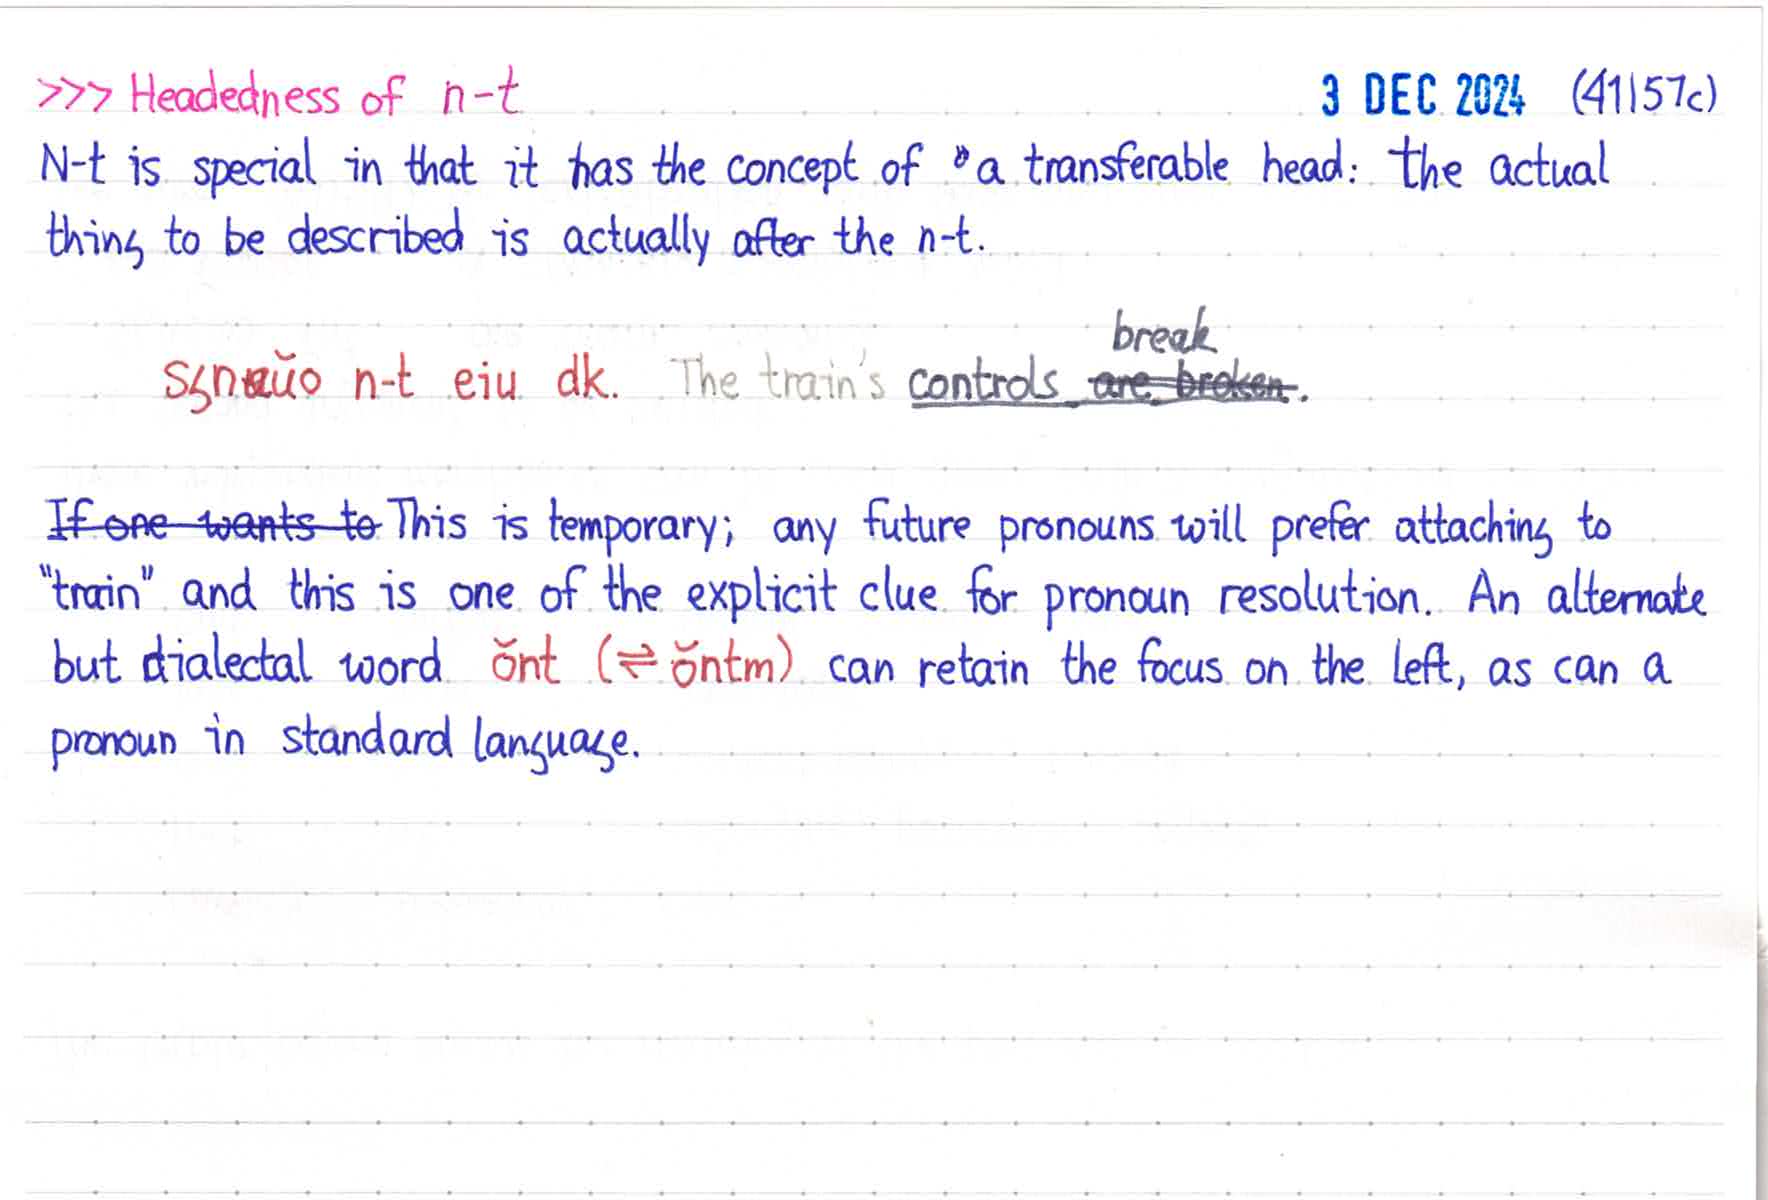 >>> Headedness of n-t 3 DEC 2024 (41157c)
N-t is special in that it has the concept of a transferable head: the actual
thing to be described is actually after the n-t.
break
n-t eiu dk. The train's controls are broken.
If one wants to This is temporary; any future pronouns will prefer attaching to
"train" and this is one of the explicit clue for pronoun resolution. An alternate
but dialectal word ŏnt (⇌ ŏntm) can retain the focus on the left, as can a
pronoun in standard language.